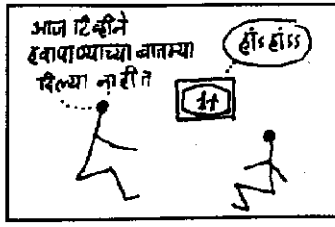 आज टिव्हीने
हवापाण्याच्या बातम्या
दिल्या नाहीत
हॅांऽहांऽऽ